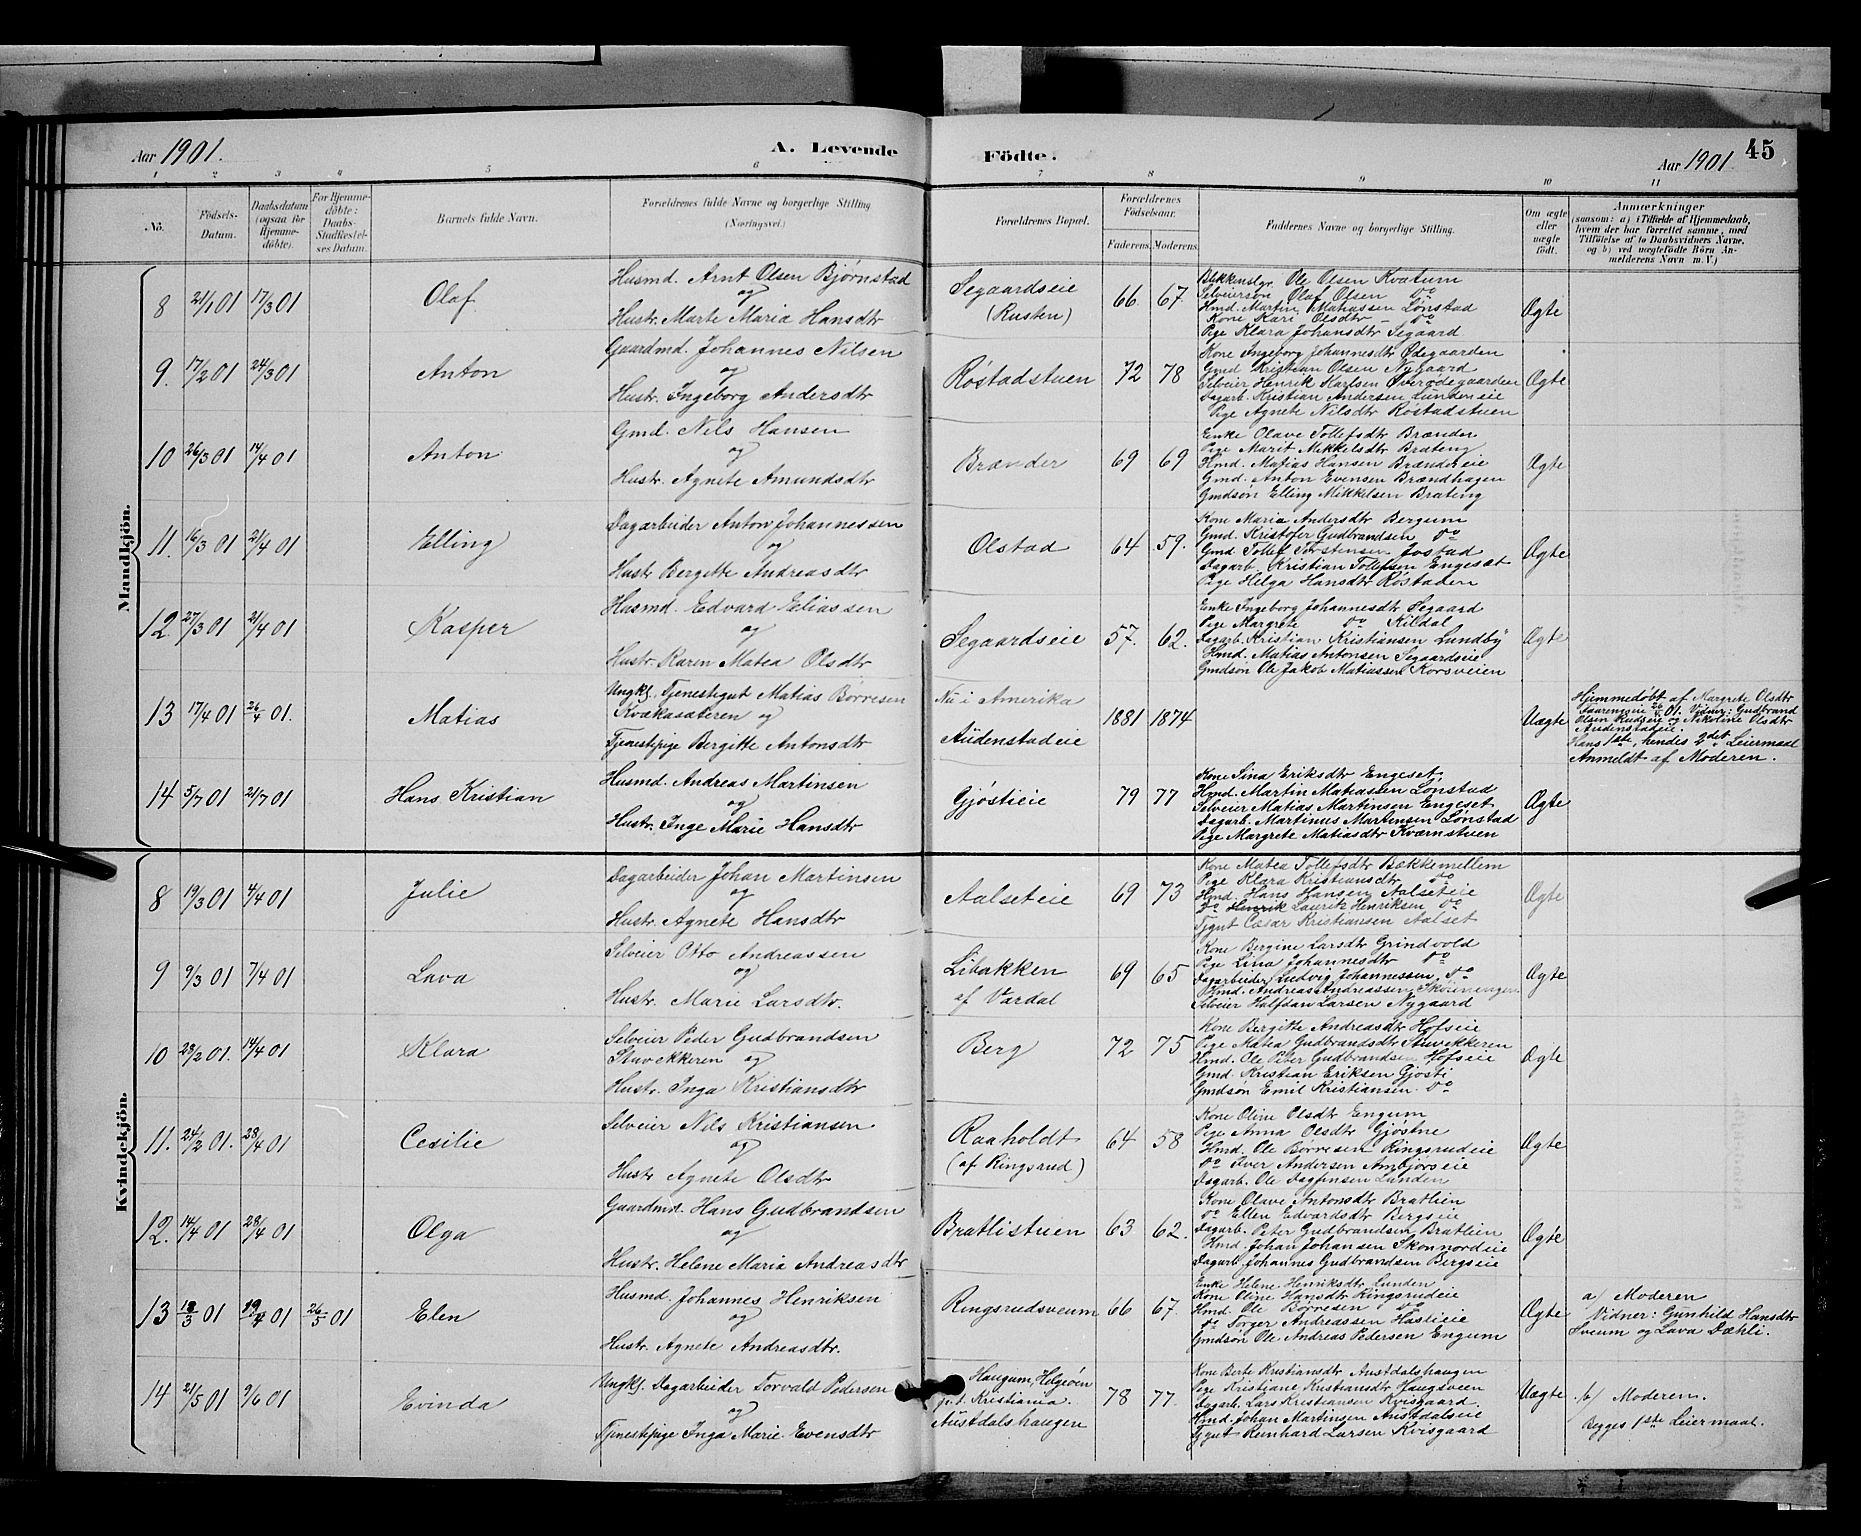 Aar 1901.
A. Levende
Födte.
Aar 1901
45
1 2 3 4 5 6 7 8 9 10 11
Nö.
Födsels-Datum.
Daabsdatum (ogsaa for Hjemme-döbte).
For Hjemme-döbte: Daabs-Stadfæstel-ses Datum.
Barnets fulde Navn.
Forældrenes fulde Navne og borgerlige Stilling (Næringsvei.)
Forældrenes Bopæl.
Forældrenes Födselsaar.
Faderens. Moderens.
Faddernes Navne og borgerlige Stilling.
Om ægte eller uægte födt.
Anmærkninger
(saasom: a) i Tilfælde af Hjemmedaab, hvem der har forrettet samme, med Tilföielse af to Daabsvidners Navne, og b) ved uægtefödte Börn An-melderens Navn m. V.)
Mandkjön.
8 21/1 01 17/3 01 Olaf
Husmd. Arnt Olsen Bjørnstad
og
Hustr. Marte Maria Hansdtr
Segaardseie
(Rusten)
66 67
Blikkenslgr. Ole Olsen Kvatum
Selveiersøn Olaf Olsen do
Hmd. Martin Matiassen Lønstad
Kone Kari Olsdtr - do
Pige Klara Johansdtr Segaard
Ægte
9. 17/2 01 24/3 01 Anton
Gaardmd. Johannes Nilsen
og
Hustr. Ingeborg Andersdtr
Røstadstuen 72 78
Kone Ingeborg Johannesdtr Ødegaarden
Gmd Kristian Olsen Nygaard
Selveier Henrik Karlsen Øverødegaarden
Dagarb. Kristian Andersen Lundeneie
Pige Agnete Nilsdtr Røstadstuen
Ægte
10 26/3 01 14/4 01 Anton
Gmd. Nils Hansen
og
Hustr. Agnete Amundsdtr
Brænder 69 69
Enke Olave Tollefsdtr Brænder
Pige Marit Mikkelsdtr Brateng
Hmd. Matias Hansen Brændereie
Gmd. Anton Evensen Brændhagen
Gmdsøn Elling Mikkelsen Brateng
Ægte
11. 16/3 01 21/4 01 Elling
Dagarbeider Anton Johannessen
og
Hustr Bergitte Andreasdtr
Olstad 64 59.
Kone Maria Andersdtr Bergum
Gmd. Kristofer Gudbrandsen do
Gmd Tollef Torstensen Jostad
Dagarb. Kristian Tollefsen Engeset
Pige Helga Hansdtr Røstaden
Ægte
12. 27/3 01 21/4 01 Kasper
Husmd. Edvard Eliassen
og
Hustr. Karen Matea Olsdtr
Segaardseie 57. 62.
Enke Ingeborg Johannesdtr Segaard
Pige Margrete do Kildal
Dagarb. Kristian Kristiansen Lundby
Hmd. Matias Antonsen Segaardseie
Gmdsøn Ole Jakob Matiassen Korsveien
Ægte
13 17/4 01 26/4 01. Matias
Ungkl. Tjenestegut Matias Børresen
Kvækasæteren og
Tjenestepige Bergitte Antonsdtr
Nu i Amerika
Audenstadeie
1881 1874
Uægte
Hjemmedøbt af Margrete Olsdtr
26/4 01. Vidner: Gudbrand
Olsen Rudseie og Nikoline Olsdtr
Audenstadeie.
Hans 1ste, hendes 2det Leiermaal
Anmeldt af Moderen.
14 5/7 01 21/7 01 Hans Kristian
Husmd. Andreas Martinsen
og
Hustr. Inge Marie Hansdtr
Gjøstieie 79 77
Kone Sina Eriksdtr Engeset
Hmd. Martin Matiassen Lønstad
Selveier Matias Martinsen Engeset
Dagarb. Martinus Martinsen Lønstad
Pige Margrete Matiasdtr Kværnstuen
Ægte
Kvindekjön.
8 19/3 01 4/4 01 Julie
Dagarbeider Johan Martinsen
og
Hustr. Agnete Hansdtr
Aalseteie 69 73
Kone Matea Tollefsdtr Bækkemellem
Pige Klara Kristiansdtr do
Hmd. Hans Hansen Aalseteie
do Henrik Lauritz Henriksen do
Tjgut Cæsar Kristiansen Aalset
Ægte
9 9/3 01 7/4 01 Lava
Selveier Otto Andreassen
og
Hustr. Marie Larsdtr.
Libakken
af Vardal
69 65
Kone Bergine Larsdtr Grindvold
Pige Lina Johannesdtr do
Dagarbeider Ludvig Johannessen do
Hmd. Andreas Andreassen Skoienengen
Selveier Halfdan Larsen Nygaard
Ægte
10 28/2 01. 14/4 01 Klara
Selveier Peder Gudbrandsen
Stuvekkeren og
Hustr. Inga Kristiansdtr
Berg 72 75
Kone Bergitte Andreasdtr Hofseie
Pige Matea Gudbrandsdtr Stuvekkeren
Hmd. Ole Peter Gudbrandsen Hofseie
Gmd. Kristian Eriksen Gjøsti
Gmdsøn Emil Kristiansen do
Ægte
11. 24/2 01. 28/4 01 Cecilie
Selveier Nils Kristiansen
og
Hustr Agnete Olsdtr
Raaholdt
(af Ringsrud)
64 58
Kone Oline Olsdtr Engum
Pige Anna Olsdtr Gjøstne
Hmd. Ole Børresen Ringsrudeie
do Iver Andersen Ambjørseie
Dagarb. Ole Dagfinsen Lunden
Ægte
12. 14/4 01 28/4 01 Olga
Gaardmd. Hans Gudbrandsen
og
Hustr. Helene Maria Andreasdtr
Bratlistuen 63 62.
Kone Olave Antonsdtr Bratlien
do Ellen Edvardsdtr Bergseie
Dagarb. Peter Gudbrandsen Bratlien
Hmd. Johan Johansen Skonnordeie
Dagarb. Johannes Gudbrandsen Bergseie
Ægte
13 18/3 01 29/4 01 26/5 01 Elen
Husmd. Johannes Henriksen
og
Hustr. Agnete Andreasdtr.
Ringsrudsveum 66 67.
Enke Helene Henriksdtr Lunden
Kone Oline Hansdtr Ringsrudeie
Hmd. Ole Børresen do
do Torger Andreassen Haslieie
Gmdsøn Ole Andreas Pedersen Engum
Ægte
a/ Moderen
Vidner: Gunhild Hansdtr
Sveum og Lava Dæhli.
14 21/5 01 9/6 01 Evinda
Ungkl. Dagarbeider Torvald Pedersen
og
Tjenestepige Inga Marie Evensdtr
Haugum, Helgøen
p.t. Kristiania.
Austdalshaugen
78 77.
Kone Berte Kristiansdtr Austdalshaugen
Pige Kristiane Kristiansdtr Haugsveen
Dagarb. Lars Kristiansen Kvisgaard
Hmd. Johan Martinsen Austdalseie
Tjgut Reinhard Larsen Kvisgaard
Uægte
b/ Moderen.
Begges 1ste Leiermaal.